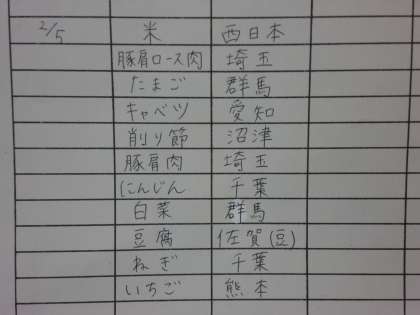 2/5 米 西日本
豚肩ロース肉 埼玉
たまご 群馬
キャベツ 愛知
削り節 沼津
豚肩肉 埼玉
にんじん 千葉
白菜 群馬
豆腐 佐賀(豆)
ねぎ 千葉
いちご 熊本